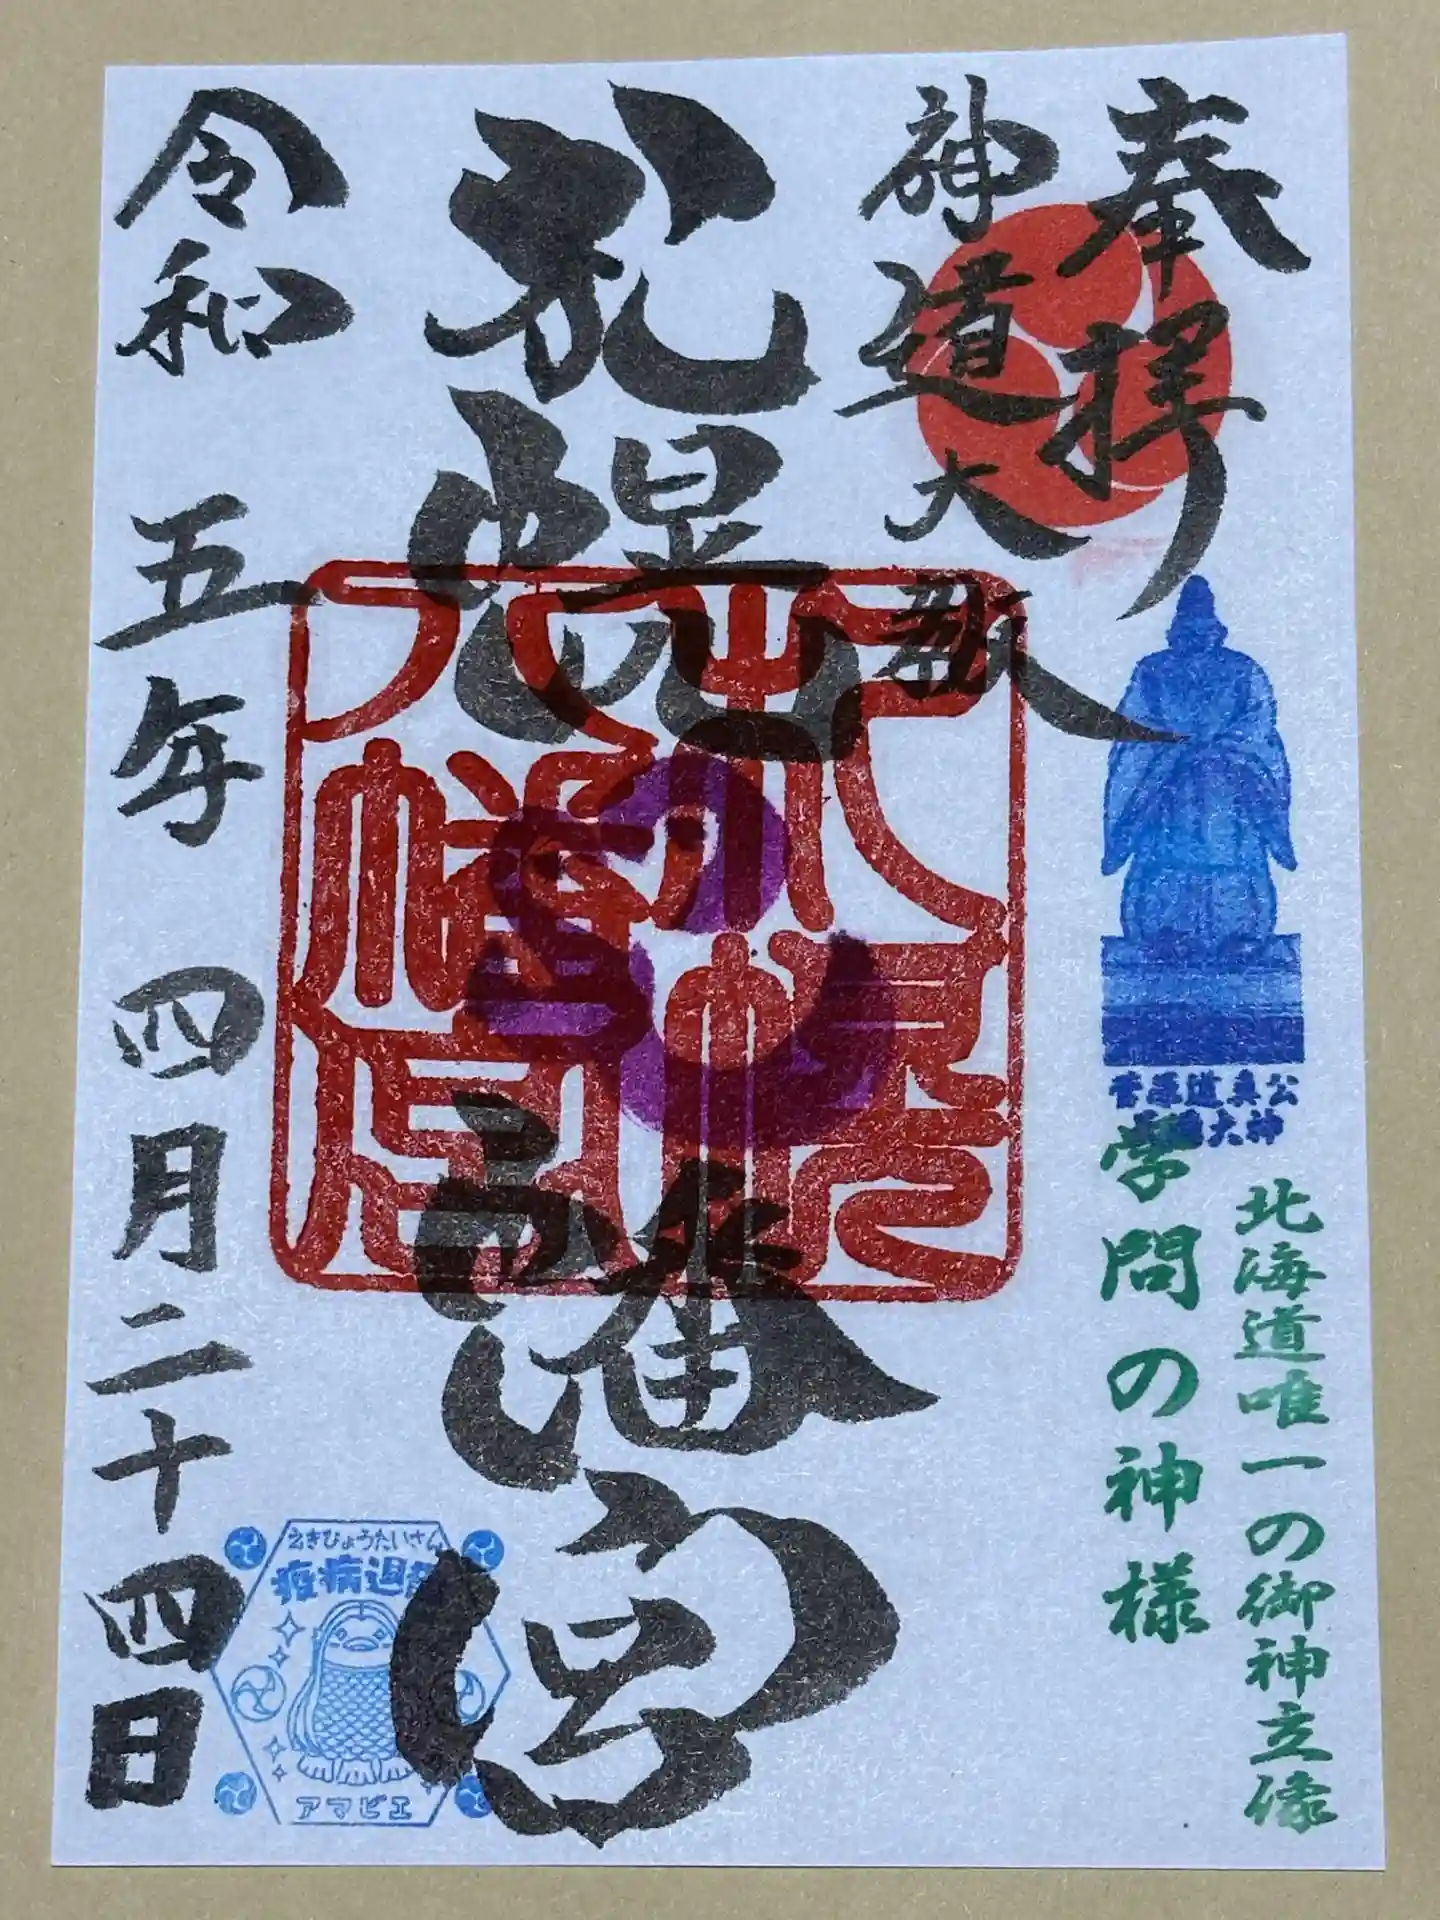 奉拝
神道大教
札幌八幡宮
札幌八幡宮
菅原道真公
大神
北海道唯一の御神立像
学問の神様
令和五年四月二十四日
えきびょうたいさん
疫病退散
アマビエ